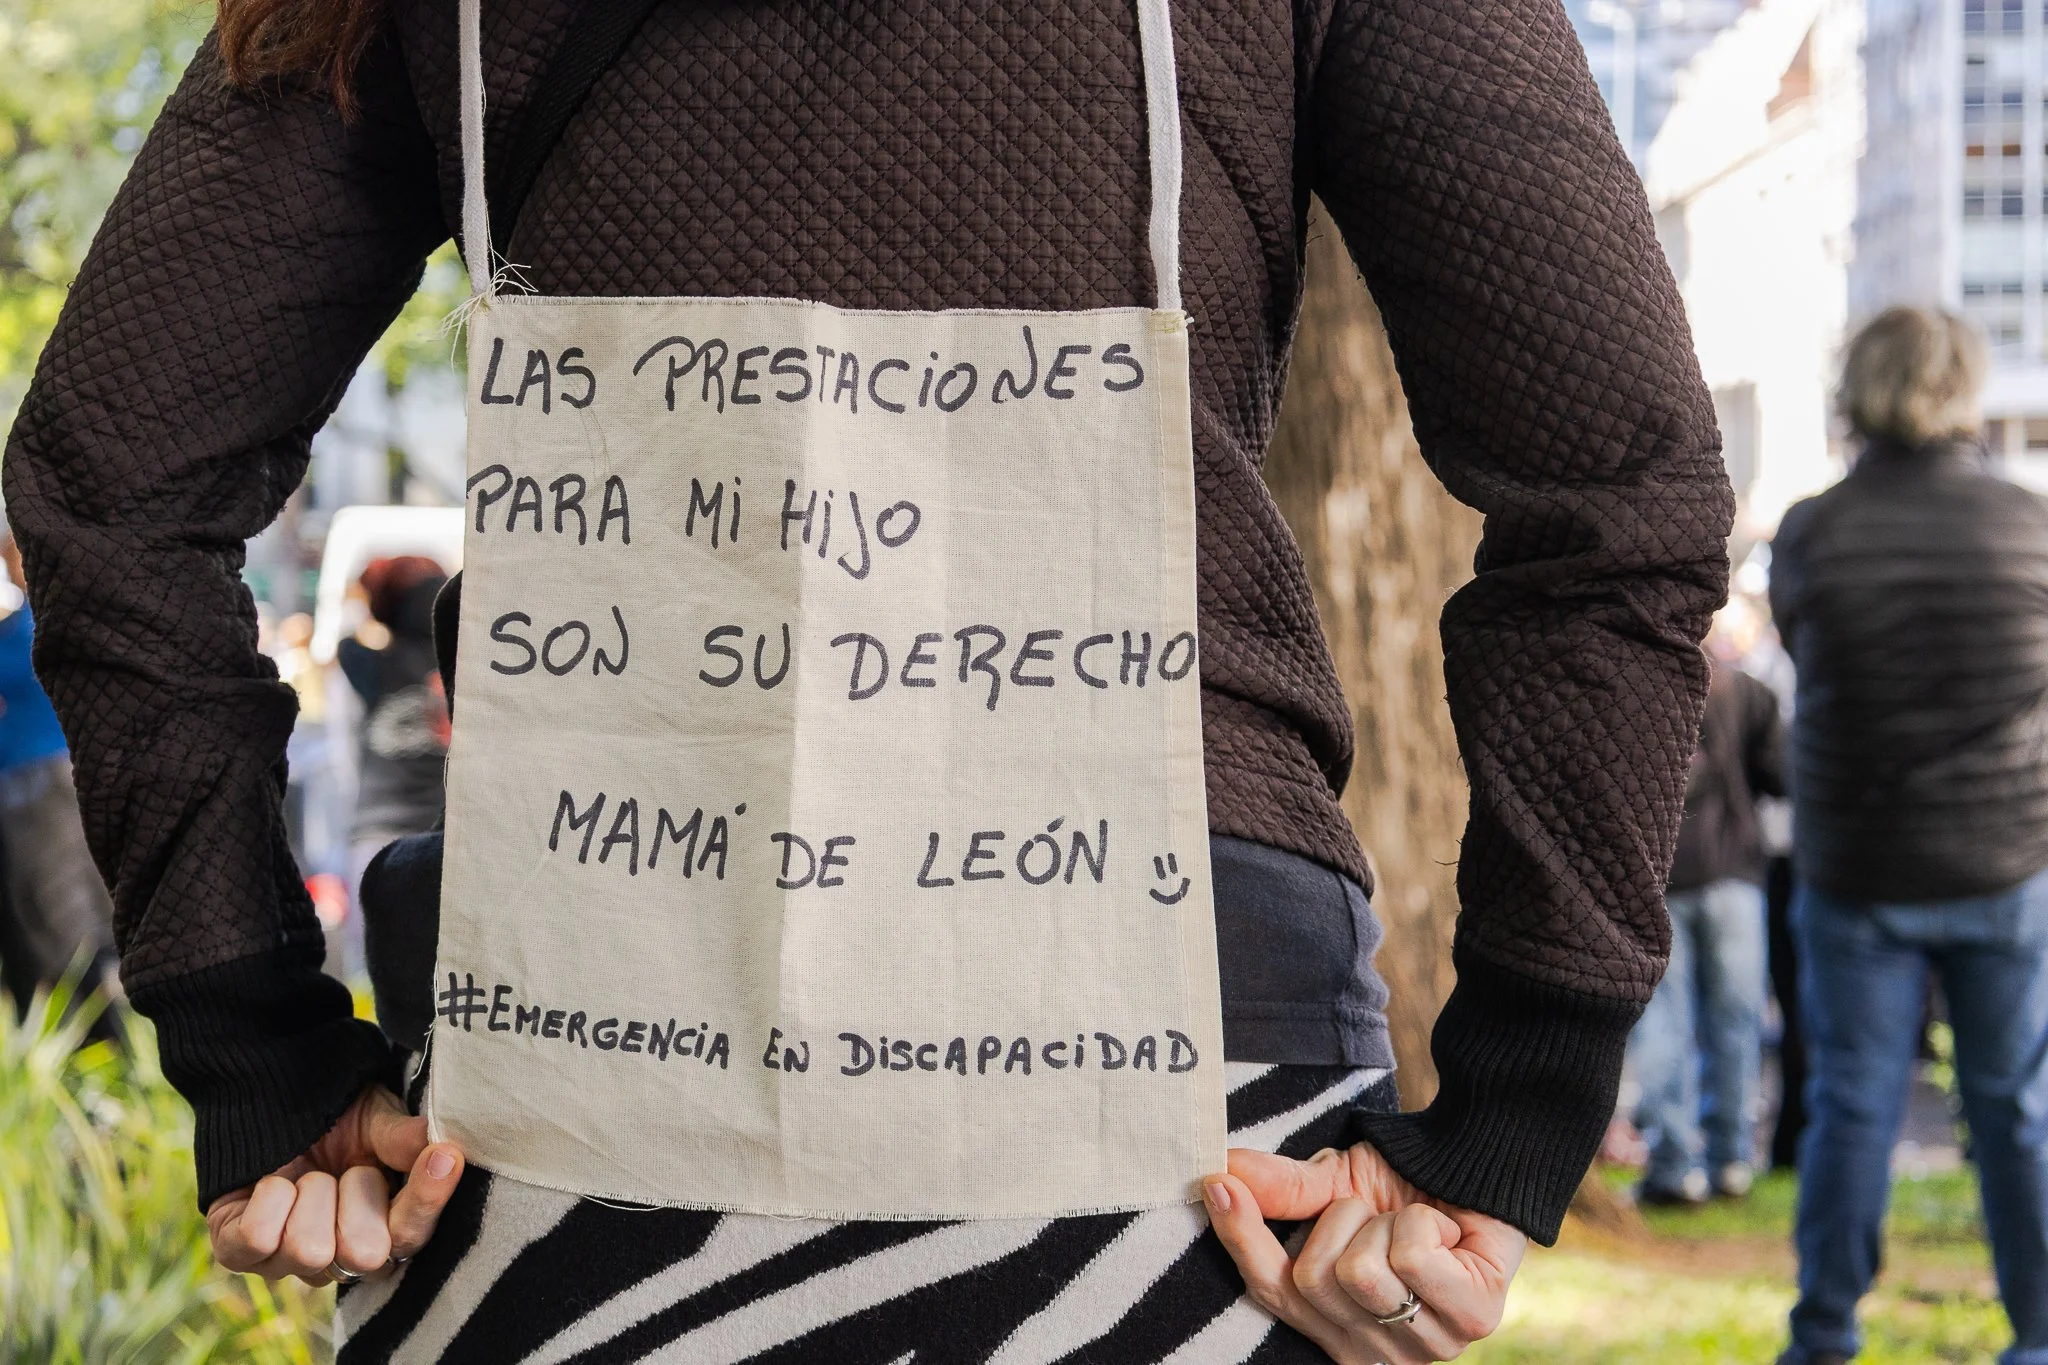 LAS PRESTACIONES
PARA MI HIJO
SON SU DERECHO
MAMÁ DE LEÓN
#EMERGENCIA EN DISCAPACIDAD